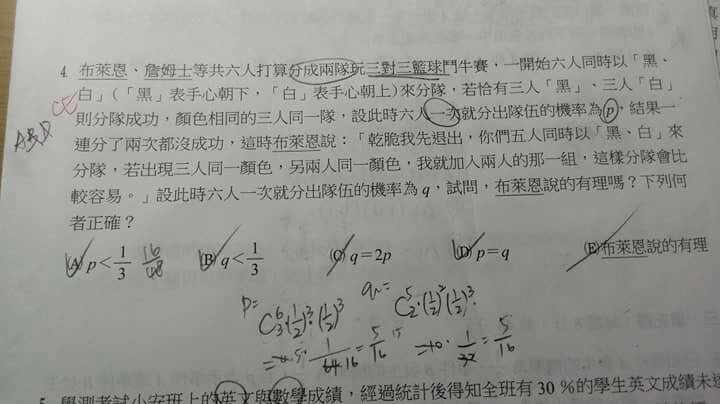 4. 布萊恩、詹姆士等共六人打算分成兩隊玩三對三籃球鬥牛賽，一開始六人同時以「黑、
白」(「黑」表手心朝下，「白」表手心朝上)來分隊，若恰有三人「黑」、三人「白」
則分隊成功，顏色相同的三人同一隊，設此時六人一次就分出隊伍的機率為p，結果一
連分了兩次都沒成功，這時布萊恩說：「乾脆我先退出，你們五人同時以「黑、白」來
分隊，若出現三人同一顏色，另兩人同一顏色，我就加入兩人的那一組，這樣分隊會比
較容易。」設此時六人一次就分出隊伍的機率為 q，試問，布萊恩說的有理嗎？下列何
者正確？
(A) p < 1/3 (B) q < 1/3 (C) q = 2p (D) p = q (E)布萊恩說的有理
P= C⁶₃·(1/2)³·(1/2)³
q= C⁵₂·(1/2)²(1/2)³
= 5/16
=10·1/32 = 5/16
5. 學測考試小安班上的英文與數學成績，經過統計後得知全班有 30 %的學生英文成績未達